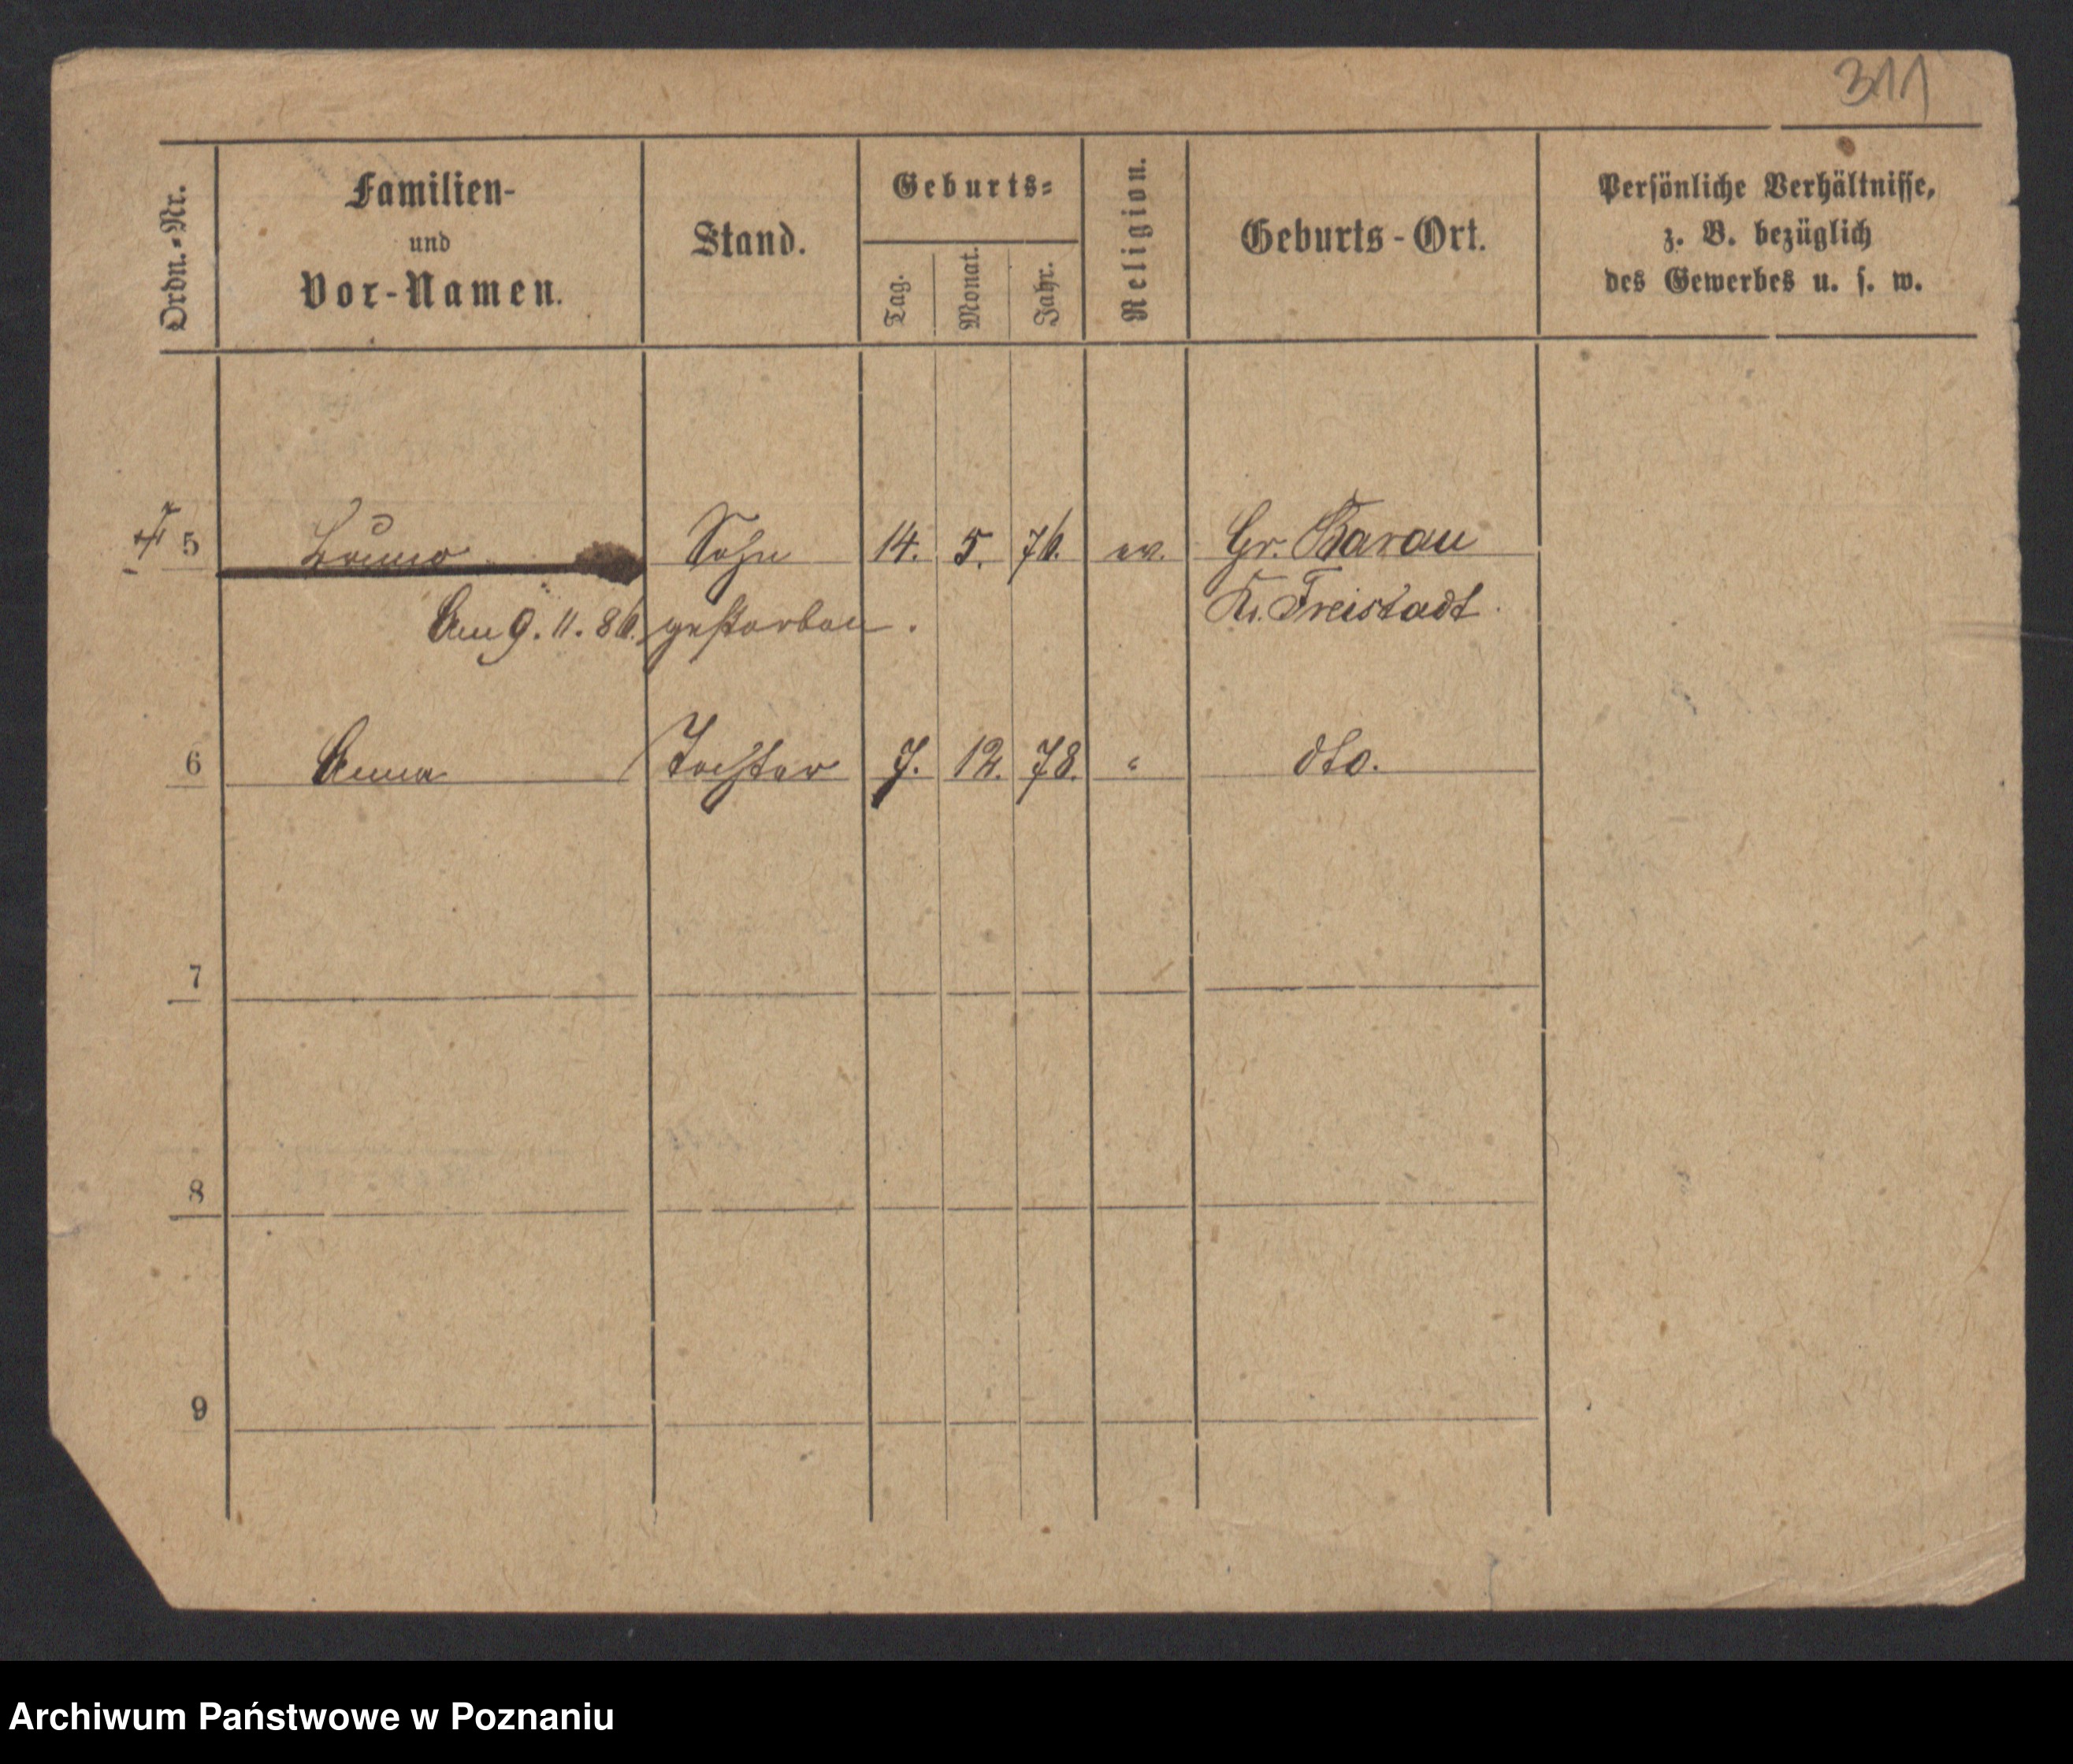 311
Ordn.-Nr.
Familien-
und
Vor-Namen.
Stand.
Geburts-
Tag.
Monat.
Jahr.
Religion.
Geburts-Ort.
Persönliche Verhältnisse,
z. B. bezüglich
des Gewerbes u. s. w.
5 Bruno Sohn 14. 5. 76. ev. Gr. Barau
Am 9. 11. 86. gestorben. Kr. Freistadt.
6 Anna Tochter 7. 12. 78. " dto.
7
8
9
Archiwum Państwowe w Poznaniu